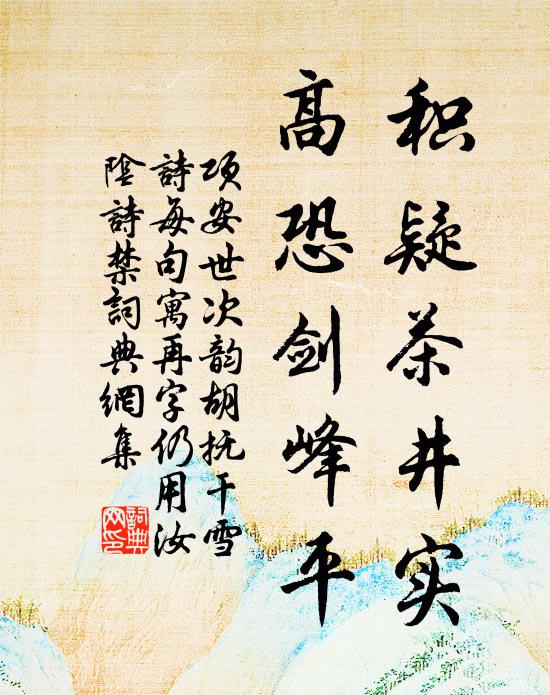 积疑茶井实
高恐剑峰平
项安世次韵胡抚干雪
詩每句寓再字仍用汝
陰詩禁詞典網集
詞典网印